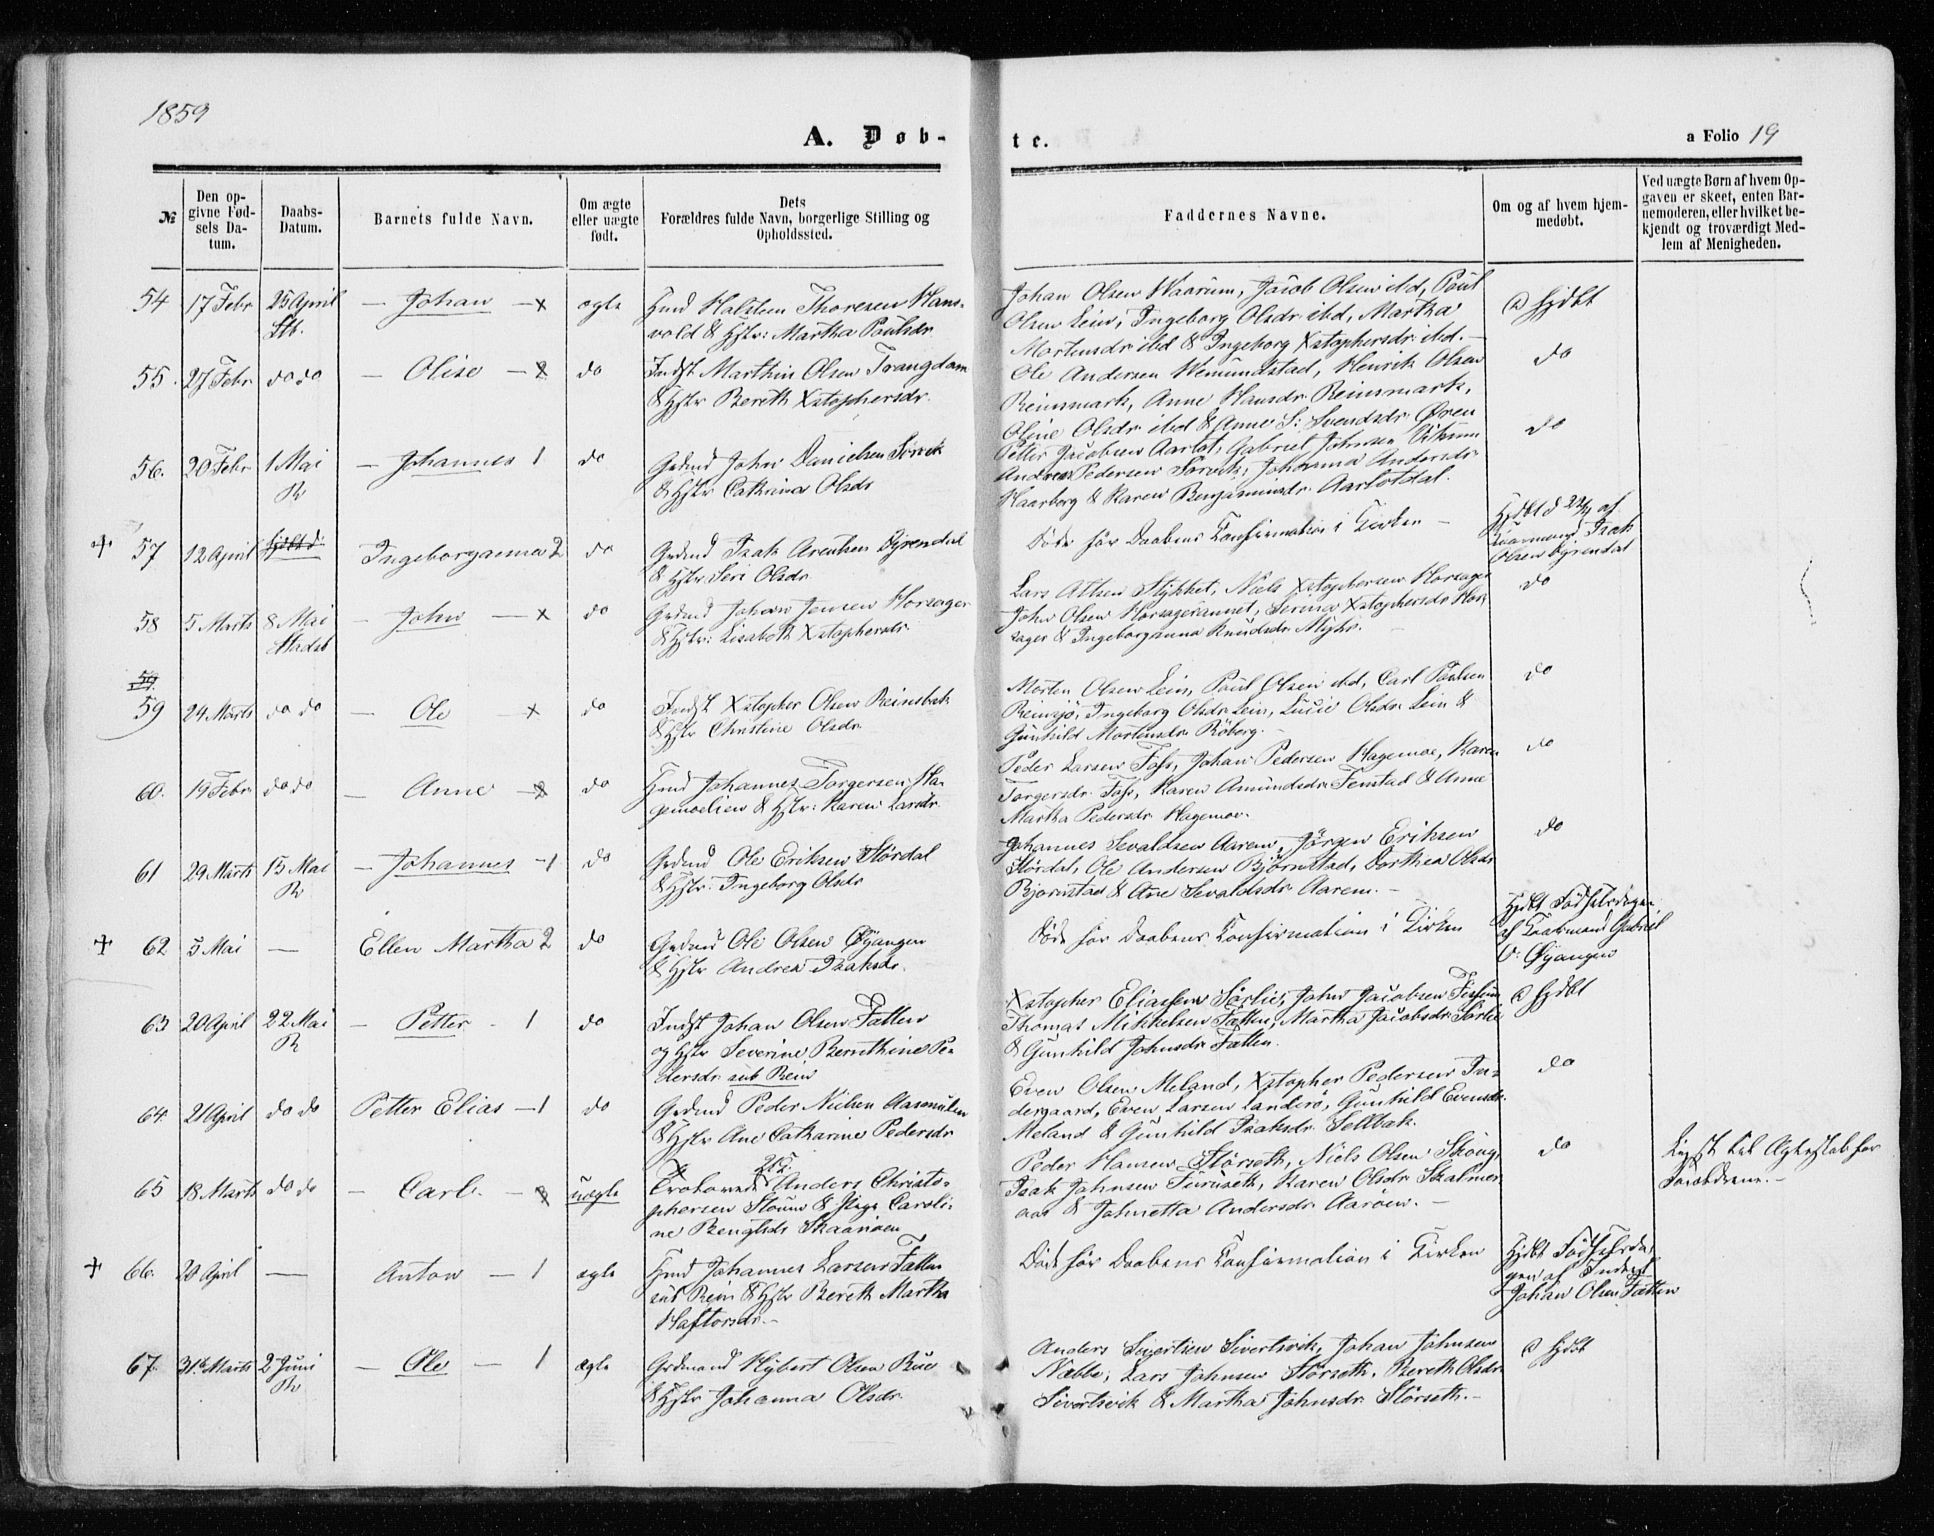 1859
A. Døb-
te.
a Folio 19
№
Den op-
givne Fød-
sels Da-
tum.
Daabs-
Datum.
Barnets fulde Navn.
Om ægte
eller uægte
født.
Dets
Forældres fulde Navn, borgerlige Stilling og
Opholdssted.
Faddernes Navne.
Om og af hvem hjem-
medøbt.
Ved uægte Børn af hvem Op-
gaven er skeet, enten Bar-
nemoderen, eller hvilket be-
kjendt og troværdigt Med-
lem af Menigheden.
54 17 Febr 25 April — Johan — x ægte
Stb.
Hmd Halsten Thoresen Hans-
vold & Hstr: Martha Paulsdr.
Johan Olsen Waarum, Jacob Olsen ibd, Paul
Olsen Lein, Ingeborg Olsdr. ibd, Martha
Mortensdr ibd & Ingeborg Xstophersdr. ibd. —
Hjdbt
55. 27 Febr do do — Olise — 2 do
Indst Marthin Olsen Trangdam
& Hstr Bereth Xstophersdr.
Ole Andersen Wemundstad, Henrik Olsen
Reinsmark, Anne Hansdr Reinsmark,
Oline Olsdr ibd & Anne S: Svendsdr. Øren
do
56. 20 Febr 1 Mai — Johannes 1 do
R
Grdmd John Danielsen Sørvik
& Hstr Cathrina Olsdr
Petter Jacobsen Aarlot, Gabriel Johnsen Vikum
Andreas Pedersen Sørvik, Johanna Andersdr
Haarberg & Karen Benjaminsdr. Aarlotdal.
do
+ 57 12 April hjdbt d: Ingeborganna 2 do
Grdmd Isak Arentsen Dyrendal
& Hstr Seri Olsdr.
Døde før Daabens Confirmation i Kirken —
Hjdbt d 22/4 af
Kaarmand Isak
Olsen Dyrendal
58 5 Marts 8 Mai — John — x do
Stadsb
Grdmd Johan Jensen Horsager
& Hstr: Lisabeth Xstophersdr.
Lars Atlsen Stykket, Niels Xstophersen Horsager
John Olsen Horsageraunet, Serina Xstophersdr. Hor-
sager & Ingeborganna Knudsdr. Myhr.
do
59
59 24 Marts do do — Ole — x do
Indst Xstopher Olsen Reinsbak
& Hstr Christine Olsdr.
Morten Olsen Lein, Paul Olsen ibd, Carl Paulsen
Reinsjö, Ingeborg Olsdr. Lein, Lucie Olsdr. Lein &
Gunhild Mortensdr Röberg. —
do
60. 19 Febr. do do — Anne — 2 do
Hmd Johannes Torgersen Ha-
gemoelien & Hstr: Karen Larsdr.
Peder Larsen Foss, Johan Pedersen Hagemoe, Karen
Torgersdr. Foss, Karen Amundsdr. Fenstad & Anne
Martha Pedersdr. Hagemoe.
do
61 29 Marts 15 Mai — Johannes — 1 do
R
Grdmd Ole Eriksen Størdal
& Hstr. Ingeborg Olsdr
Johannes Sevaldsen Aarem, Jörgen Eriksen
Størdal, Ole Andersen Björnstad, Dorthea Olsdr
Bjørnstad & Ane Sevaldsdr. Aarem. —
do
+ 62 5 Mai — Ellen Martha 2 do
Grdmd Ole Olsen Øyangen
& Hstr Andrea Isaksdr.
Døde før Daabens Confirmation i Kirken
Hjdbt Fødselsdagen
af Kaarmand Gabriel
O: Øyangen
63 20 April 22 Mai — Petter — 1 do
R
Indst Johan Olsen Fætten
og Hstr Severine Bernthine Pe-
dersdr. sub Rein
Xstopher Eliassen Sörlie, John Jacobsen Fissum
Thomas Mikkelsen Fætten, Martha Jacobsdr. Sörlie
& Gunhild Johnsdr. Fætten.
Hjdbt
64 21 April do do Petter Elias — 1 do
Grdmd Peder Nielsen Aasemulen
& Hstr Ane Catharine Pedersdr
Even Olsen Meland, Xstopher Pedersen In-
dergaard, Even Larsen Landerö, Gunhild Evensdr.
Meland & Gunhild Isaksdr. Sellbak.
do
65 18 Marts do do — Carl. — 2 uægte
Trolovede Anders Christo-
phersen Stöum & Pige Caroli-
ne Bengtsdr. Skaanøen
Peder Hansen Størseth, Niels Olsen Skoug,
Isak Johnsen Furuseth, Karen Olsdr Skalmer-
aas & Johnetta Andersdr. Aaröen. —
do
Lyst til Ægteskab før
Forældrene. —
+ 66. 20 April — Anton — 1 ægte
Hmd Johannes Larsen Fætten
sub Rein & Hstr Bereth Martha
Haftorsdr. —
Døde før Daabens Confirmation i Kirken
Hjdbt Fødselsda-
gen af Inderst
Johan Olsen Fætten
67. 31te Marts 2 Juni — Ole — 1 ægte
R
Grdmand Hybert Olsen Bue
& Hstr Johanna Olsdr.
Anders Sivertsen Sivertsvik, Johan Johnsen
Næbbe, Lars Johnsen Størseth, Bereth Olsdr.
Sivertsvik & Martha Johnsdr. Størseth. —
Hjdbt